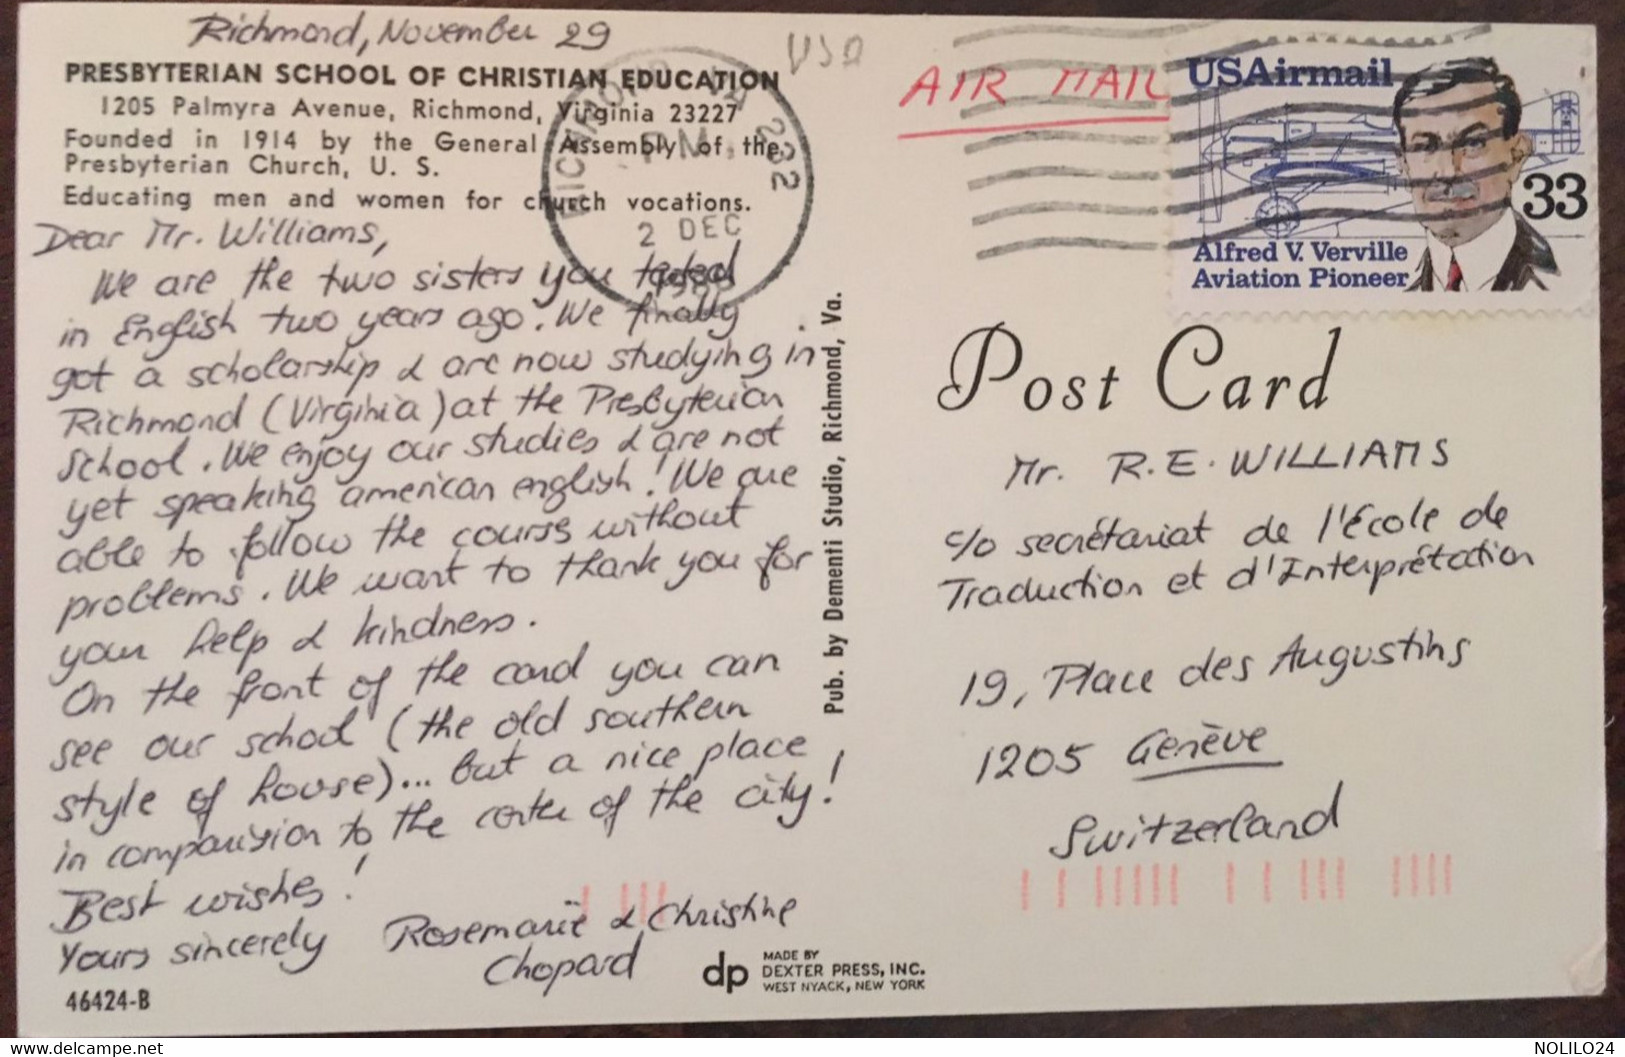 Richmond, November 29
USA
PRESBYTERIAN SCHOOL OF CHRISTIAN EDUCATION
1205 Palmyra Avenue, Richmond, Virginia 23227
Founded in 1914 by the General Assembly of the
Presbyterian Church, U. S.
Educating men and women for church vocations.
RICHMOND VA 232
PM
2 DEC
Dear Mr. Williams,
We are the two sisters you tested
in English two years ago. We finally
got a scholarship & are now studying in
Richmond (Virginia) at the Presbyterian
School. We enjoy our studies & are not
yet speaking american english! We are
able to follow the courses without
problems. We want to thank you for
your help & kindness.
On the front of the card you can
see our school (the old southern
style of house)... but a nice place
in comparision to the center of the city!
Best wishes!
Yours sincerely
Rosemarie & Christine
Chopard
46424-B
Pub. by Dementi Studio, Richmond, Va.
dp
MADE BY
DEXTER PRESS, INC.
WEST NYACK, NEW YORK
AIR MAIL
USAirmail
33
Alfred V. Verville
Aviation Pioneer
Post Card
Mr. R.E. WILLIAMS
c/o secrétariat de l'École de
Traduction et d'Interprétation
19, Place des Augustins
1205 Genève
Switzerland
delcampe.net
NOLILO24